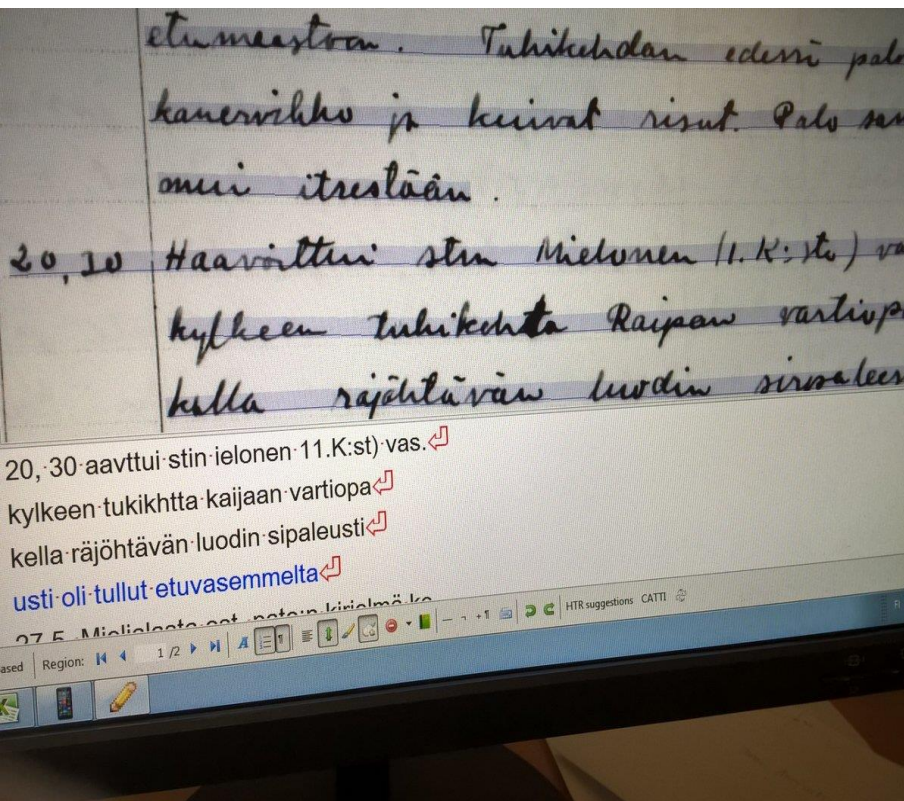 etumaastoon. Tulikehdan edessä palo
kanervikko ja kuivat risut. Palo sam
mui itsestään.
20,30 Haavoittui stm Mielonen (1.K:sto) va
kylkeen tulikehta Raipan vartiop
kella räjähtävän luodin sirpalees
20,·30·aavttui·stin·ielonen·11.K:st)·vas.
kylkeen·tukikhtta·kaijaan·vartiopa
kella·räjöhtävän·luodin·sipaleusti
usti·oli·tullut·etuvasemmelta
27.5. Mielialasta
ased Region: 1 /2 HTR suggestions CATTI